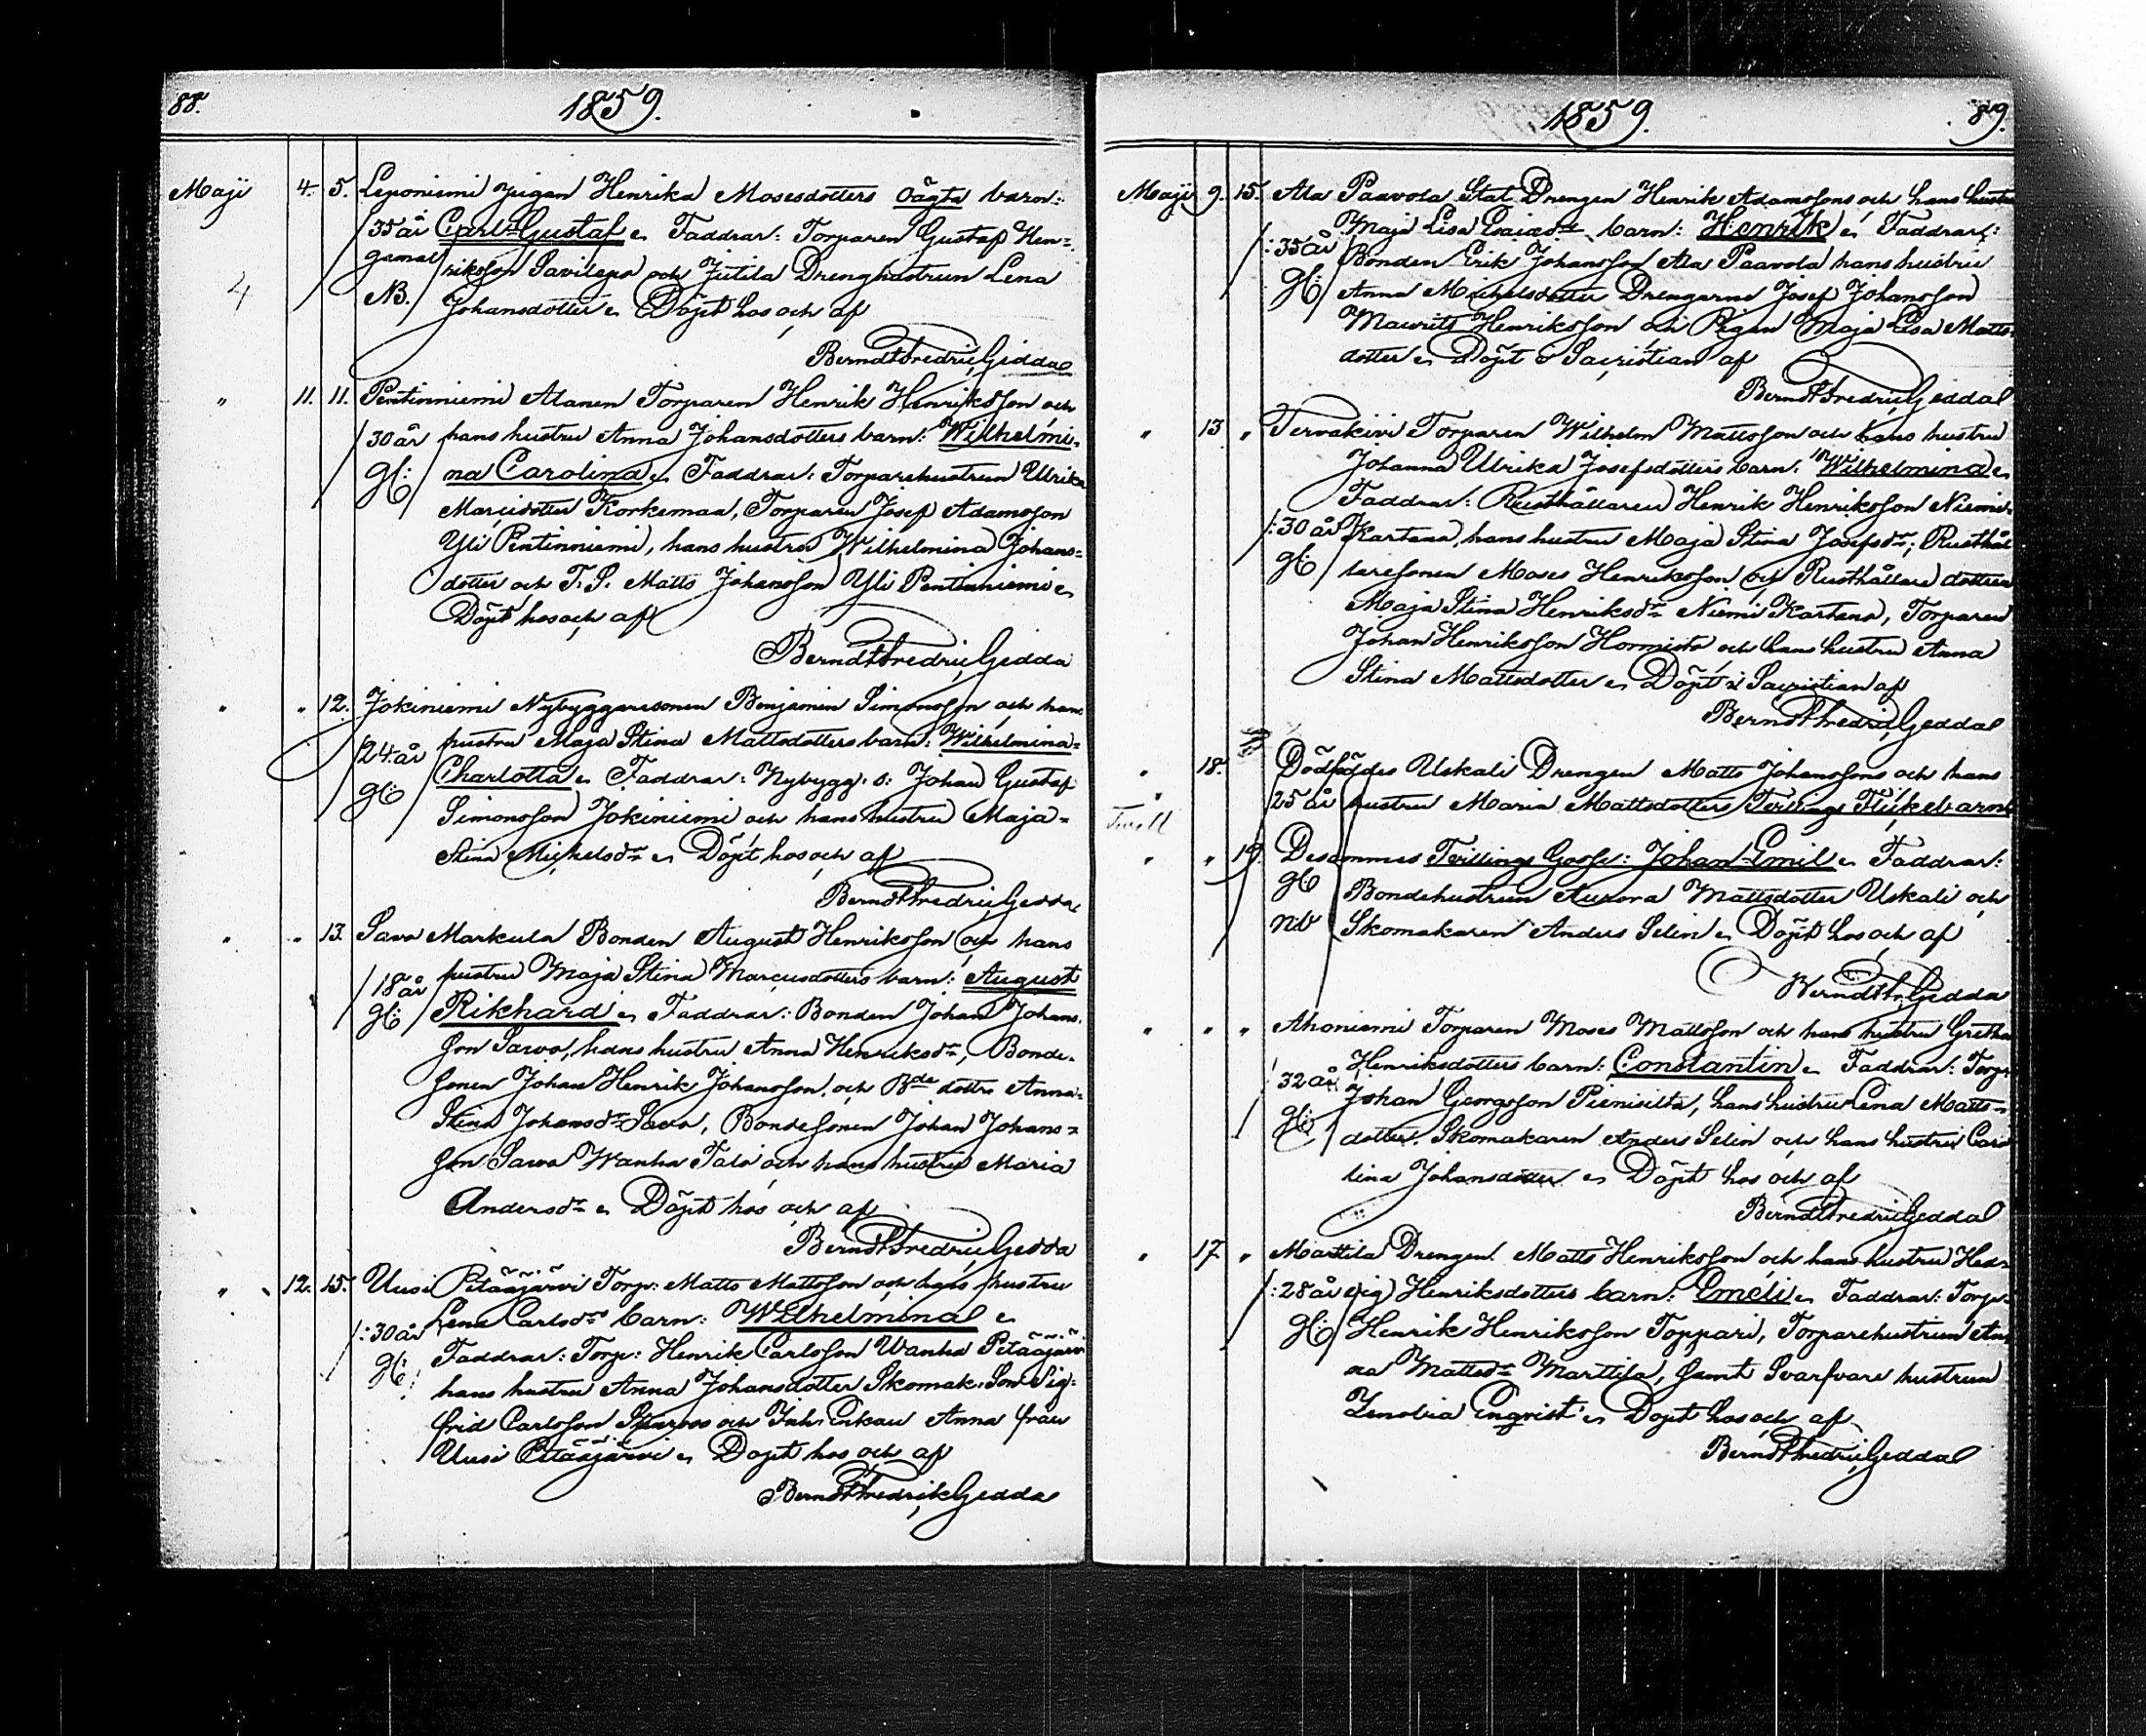 88.
1859.
Maji 4. 5. Leponiemi pigan Henrika Mosesdotters oägta barn:
35 år Carl Gustaf Faddrar: Torparen Gustaf Hen=
gamal riksson Savilepo och Jutila Drenghustrun Lena
4 NB. Johansdotter Döpt hos och af
Berndt Fredric Gedda
" 11. 11. Pentinniemi Alanen Torparen Henrik Henriksson och
30 år hans hustru Anna Johansdotters barn: Wilhelmi-
gl: na Carolina Faddrar: Torparehustrun Ulrika
Marcidotter Korkemaa, Torparen Josef Adamsson
Yli Pentinniemi, hans hustru Wilhelmina Johans=
dotter och T. S. Matts Johansson Yli Pentinniemi
Döpt hos och af
Berndt Fredric Gedda
" " 12. Jokiniemi Nybyggaresonen Benjamin Simonsson och hans
24 år hustru Maja Stina Mattsdotters barn: Wilhelmina=
gl: Charlotta Faddrar: Nybygg. s: Johan Gustaf
Simonsson Jokiniemi och hans hustru Maja=
Stina Michelsdr Döpt hos och af
Berndt Fredric Gedda
" " 13. Savo Markula Bonden August Henriksson och hans
18 år hustru Maja Stina Marcusdotters barn: August
gl: Rikhard Faddrar: Bonden Johan Johans-
son Savo, hans hustru Anna Henriksdr, Bonde-
sonen Johan Henrik Johansson och Bde dottr. Anna=
Stina Johansdr Savo, Bondesonen Johan Johans=
son Savo Wanha Talo och hans hustru Maria
Andersdr Döpt hos och af
Berndt Fredric Gedda
" 12. 15. Uusi Pitääjärvi Torp: Matts Mattsson och hans hustru
Lena Carlsdrs barn: Wilhelmina
30 år Faddrar: Torp: Henrik Carlsson Wanha Pitääjärvi
gl: hans hustru Anna Johansdotter Skomak. Son Sig=
frid Carlsson och Inh. Enkan Anna från
Uusi Pitääjärvi Döpt hos och af
Berndt Fredrik Gedda
1859. 89.
Maji 9. 15. Ala Paavola Stat Drengen Henrik Adamssons och hans hustru
Maja Lisa Esaiædr barn: Henrik Faddrar:
35 år Bonden Erik Johansson Ala Paavola hans hustru
gl: Anna Michelsdotter Drengarne Josef Johansson
Maurits Henriksson och Pigan Maja Lisa Matts-
dotter Döpt i Sacristian af
Berndt Fredric Gedda
" 13 " Tervakivi Torparen Wilhelm Mattsson och hans hustru
Johanna Ulrika Josefsdotters barn: Wilhelmina
Faddrar: Rusthållaren Henrik Henriksson Niemi-
30 år Kartana, hans hustru Maja Stina Josefsdr; Rusthål
gl: laresonen Moses Henriksson och Rusthållare dottren
Maja Stina Henriksdr Niemi Kartano, Torparen
Johan Henriksson Hormisto och hans hustru Anna
Stina Mattsdotter Döpt i Sacristian af
Berndt Fredric Gedda
" 18. Dödföddes Uskali Drengen Matts Johanssons och hans
" 25 år hustru Maria Mattsdotters Tvillings Flickebarn
" " 19. Desammas Tvillings Gosse: Johan Emil Faddrar:
gl: Bondehustrun Aurora Mattsdotter Uskali och
nb Skomakaren Anders Selin Döpt hos och af
Berndt Fr. Gedda
" " " Ahoniemi Torparen Moses Mattsson och hans hustru Gretha
Henriksdotters barn: Constantin Faddrar: Torp:
32 år Johan Georgsson Pienisilta, hans hustru Lena Matts-
gl: dotter. Skomakaren Anders Selin och hans hustru Caro
lina Johansdotter Döpt hos och af
Berndt Fredric Gedda
" 17 " Marttila Drengen Matts Henriksson och hans hustru Hed-
28 år vig Henriksdotters barn: Emeli Faddrar: Torp.
gl: Henrik Henriksson Toppari, Torparehustrun An
na Mattsdr Marttila, samt Svarfvare hustrun
Zenobia Enqvist Döpt hos och af
Berndt Fredric Gedda